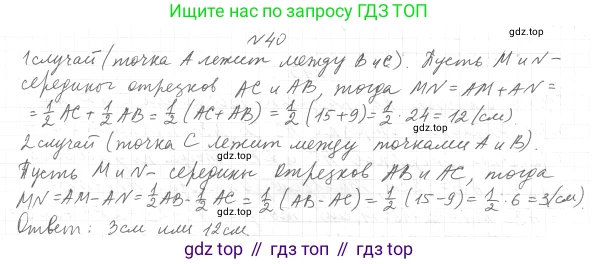 Ищите нас по запросу ГДЗ ТОП
№40
1 случай (точка А лежит между В и С). Пусть М и N-
середины отрезков АС и АВ, тогда MN = AM + AN =
= 1/2 AC + 1/2 AB = 1/2 (AC + AB) = 1/2 (15 + 9) = 1/2 · 24 = 12 (см).
gdz.top
gdz.top
2 случай (точка С лежит между точками А и В).
gdz.top
Пусть М и N- середины отрезков АВ и АС, тогда
gdz.top
MN = AM - AN = 1/2 AB - 1/2 AC = 1/2 (AB - AC) = 1/2 (15 - 9) = 1/2 · 6 = 3 (см)
Ответ: 3 см или 12 см.
gdz.top
gdz top // гдз топ // gdz top // гдз топ